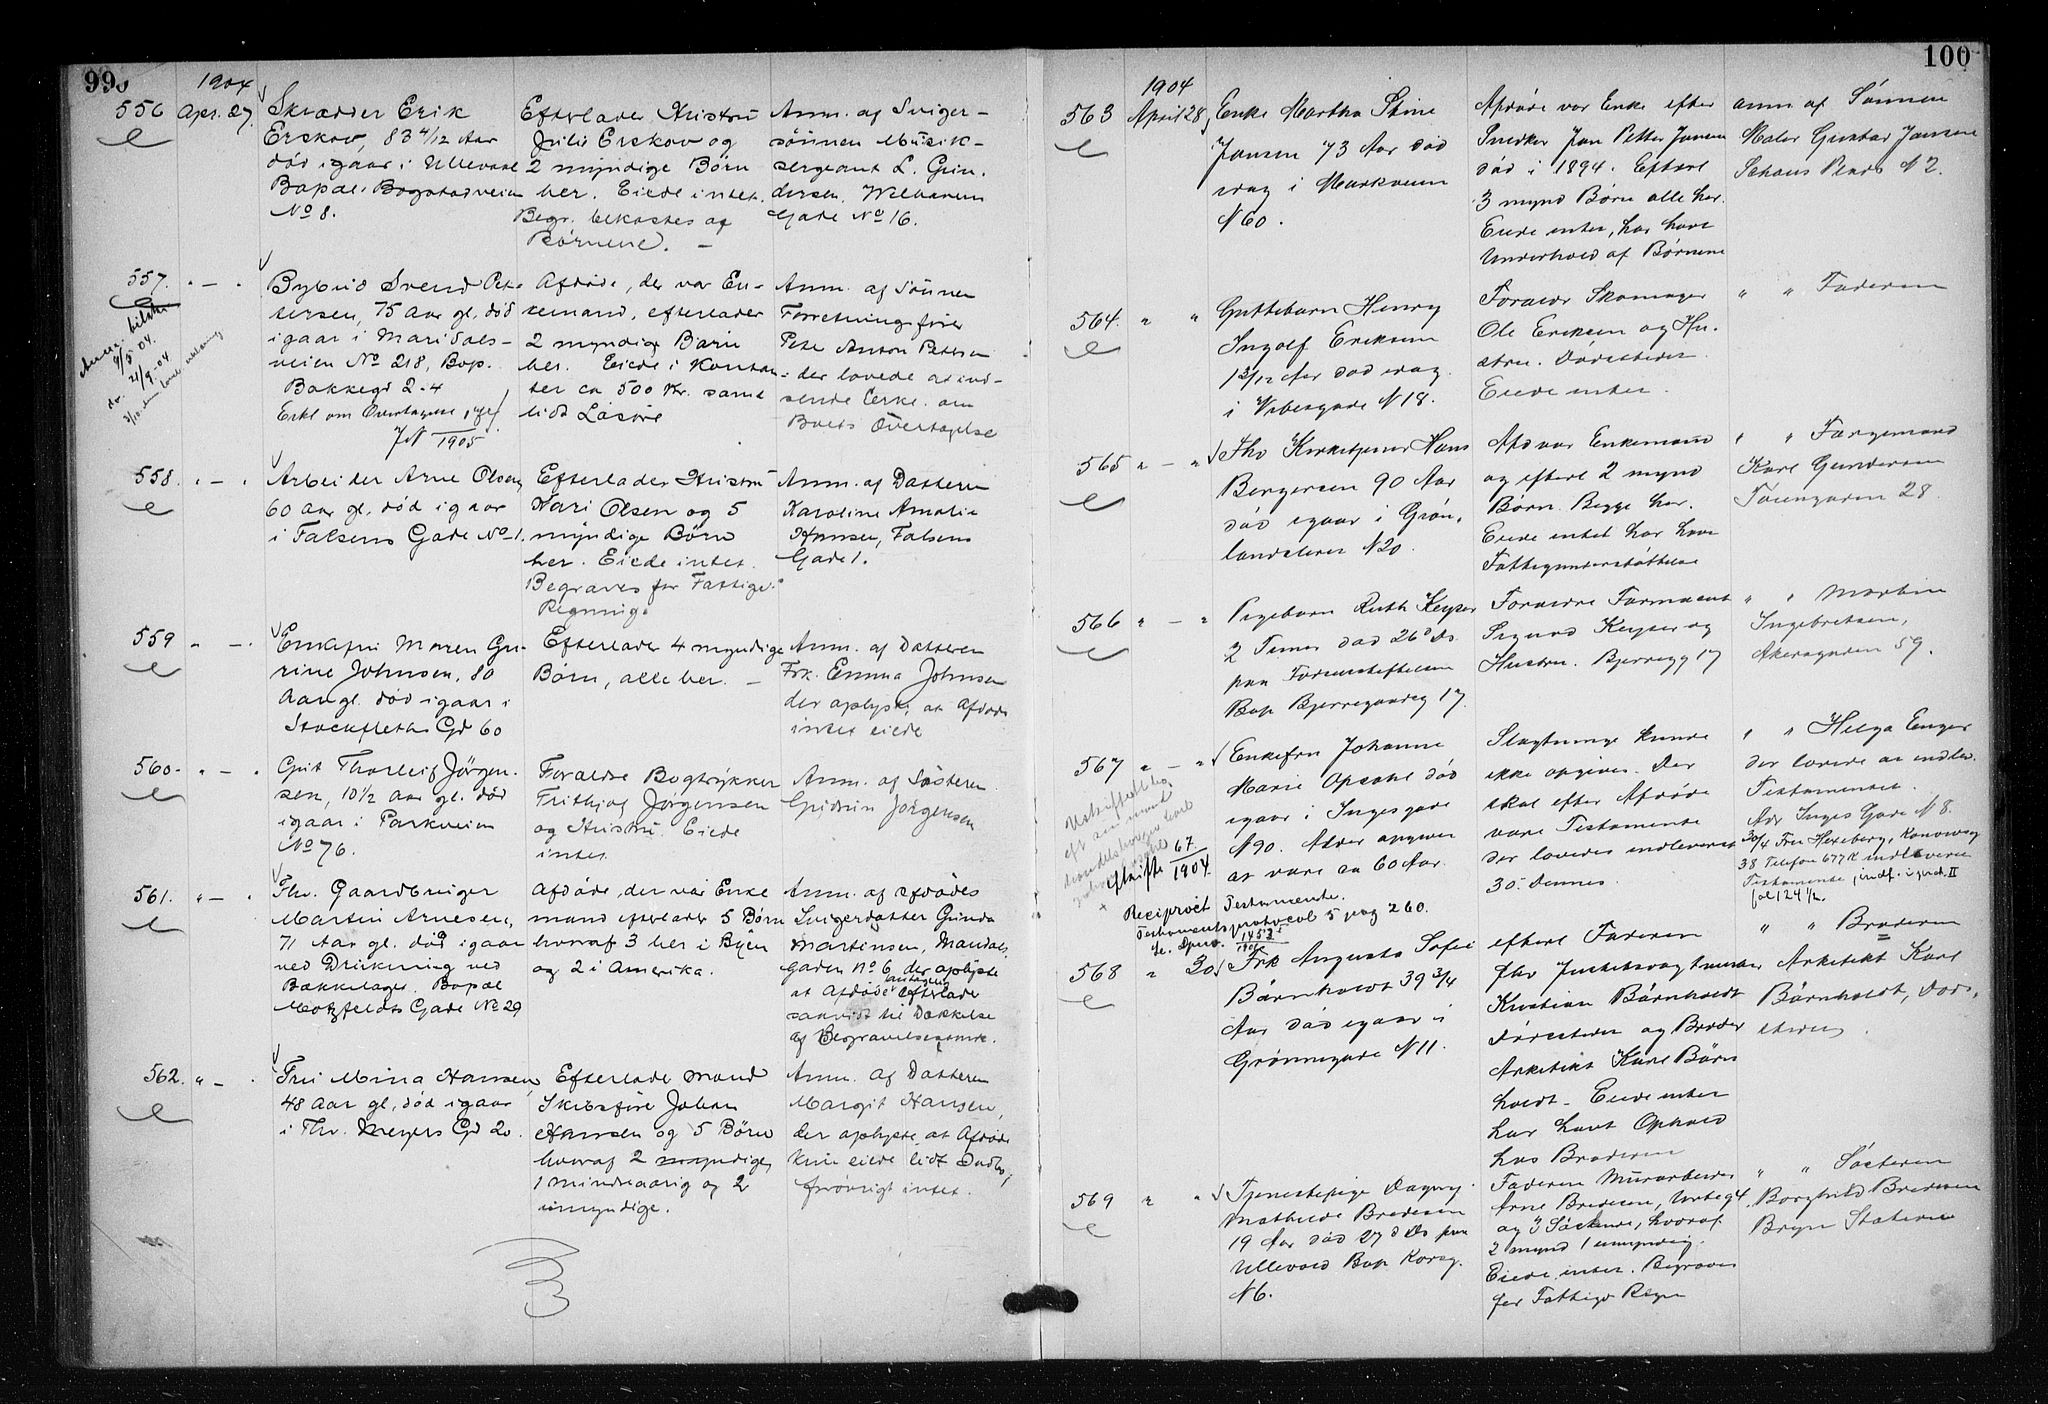 99
1904
556 Apr. 27.
Skrædder Erik
Erskov, 83 4/12 Aar
død igaar i Ullevaal
Bopæl Bogstadveien
No 8.
Efterlader Hustru
Julie Erskov og
2 myndige Børn
her. Eiede intet.
Begr. bekostes af
Børnene. –
Anm. af Sviger-
sønnen Musik-
sergeant L. Gun-
dersen, Welhavens
Gade No 16.
557. " – "
Bybud Svend Pet-
tersen, 75 Aar gl. død
igaar i Maridals-
veien No 218, Bop.
Bakkegd 2-4
Erkl om Overtagelse
JN 1905
Afdøde, der var En-
kemand, efterlader
2 myndige Børn
her. Eiede i Kontan-
ter ca 500 Kr. samt
lidt Løsøre
Anm. af Sønnen
Forretningsfører
Peter Anton Petersen
der lovede at ind-
sende Erkl. om
Boets Overtagelse
558. " – "
Arbeider Arne Olsen,
60 aar gl. død igaar
i Falsens Gade No 1.
Efterlader Hustru
Kari Olsen og 5
myndige Børn
her. Eiede intet.
Begraves for Fattige.
Regning.
Anm. af Datteren
Karoline Amalie
Hansen, Falsens
Gade 1.
559 " – "
Enkefru Maren Gu-
rine Johnsen, 80
Aar gl. død igaar i
Stockfleths Gd 60
Efterlader 4 myndige
Børn, alle her. –
Anm. af Datteren
Frk. Emma Johnsen
der oplyste, at Afdøde
intet eiede
560. " – "
Gut Thorleif Jørgen-
sen, 10 1/2 aar gl. død
igaar i Parkveien
No 76.
Forældre Bogtrykker
Frithjof Jørgensen
og Hustru. Eiede
intet
Anm. af Søsteren
Gudrun Jørgensen
561. " – "
Fhv. Gaardbruger
Martin Arnesen,
71 Aar gl. død igaar
ved Drukning ved
Bækkelaget. Bopæl
Motzfeldts Gade No 29
Afdøde, der var Enke
mand efterlader 5 Børn
hvoraf 3 her i Byen
og 2 i Amerika.
Anm. af Afdødes
Svigerdatter Gunda
Martinsen, Mandals
gaden No 6, der oplyste
at Afdøde antagelig efterlade
saavidt til Dækkelse
af Begravelsesomk.
562. " – "
Fru Mina Hansen,
48 aar gl., død igaar
i Thv. Meyers Gd 20.
Efterlader Mand
Skibsfører Johan
Hansen og 5 Børn
hvoraf 2 myndige,
1 mindreaarig og 2
umyndige.
Anm. af Datteren
Margit Hansen,
der oplyste, at Afdøde
kun eiede lidt Indbo,
forøvrigt intet.
100
1904
563 April 28
Enke Martha Stine
Jansen 73 Aar død
idag i Markveien
N 60.
Afdøde var Enke efter
Snedker Jan Petter Jansen
død i 1894. Efterl
3 mynd Børn alle her.
Eiede intet, har havt
Underhold af Børnene
anm af Sønnen
Maler Gustav Jansen
Schous Plads N 2.
564. " "
Guttebarn Henry
Ingolf Eriksen
1 3/12 Aar død idag
i Urtegade N 18.
Forældr Skomager
Ole Eriksen og Hu-
stru. Dødsstedet.
Eiede intet.
" " Faderen
565 " – "
Fhv Kirketjener Hans
Bergersen 90 Aar
død igaar i Grøn-
landsleret N 20.
Afd var Enkemand
og efterl 2 mynd
Børn. Begge her.
Eiede intet har havt
Fattigunderstøttelse
" " Færgemand
Karl Gundersen
Tøiengaden 28.
566 " – "
Pigebarn Ruth Keyser
2 Timer død 26d ds.
paa Fødselsstiftelsen
Bop Bjerregaardsg 17.
Forældre Farmaceut
Sigurd Keyser og
Hustru. Bjerregg 17
" " Martin
Ingebretsen,
Akersgaden 59.
567 " – "
Enkefru Johanne
Marie Opsahl død
igaar i Ingesgade
N 90. Alder opgives
at være ca 60 Aar.
Slægtninge kunde
ikke opgives. Der
skal efter Afdøde
være Testamente
der lovedes indleveret
30. dennes.
" " Helga Enger
der lovede at indlev.
Testamentet.
Adr Inges Gade N 8.
30/4 Fru Hexeberg, Kanonveg
38 Telefon 677K indleverer
Testamente, indf. i prot. II
fol 124 1/2.
Skifte 67/1904.
Reciprocit Testamente.
Testamentsprotocol 5 pag 260.
568 " 30
Frk Augusta Sofie
Börnholdt 39 3/4
Aar død igaar i
Grønnegade N 11.
efterl Faderen
fhv Justitsvagtmester
Kristian Börnholdt
Dødsstedet og Broder
Arkitekt Karl Börn
holdt – Eiede intet
har havt Ophold
hos Broderen
" " Broderen
Arkitekt Karl
Börnholdt, Døds-
stedet.
569 " "
Tjenestepige Dagny
Mathilde Bredesen
19 Aar død 27d ds paa
Ullevaal Bop Korsg.
N 6.
Faderen Murarbeider
Arne Bredesen, Urteg 4
og 3 Søskende, hvoraf
2 mynd 1 umyndig.
Eiede intet. Begraves
for Fattigv Regn
" " Søsteren
Borghild Bredesen
Bryn Station